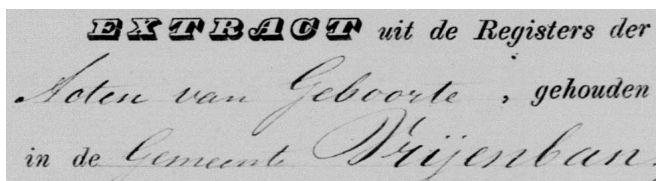 EXTRACT uit de Registers der
Acten van Geboorte, gehouden
in de Gemeente Vrijenban,